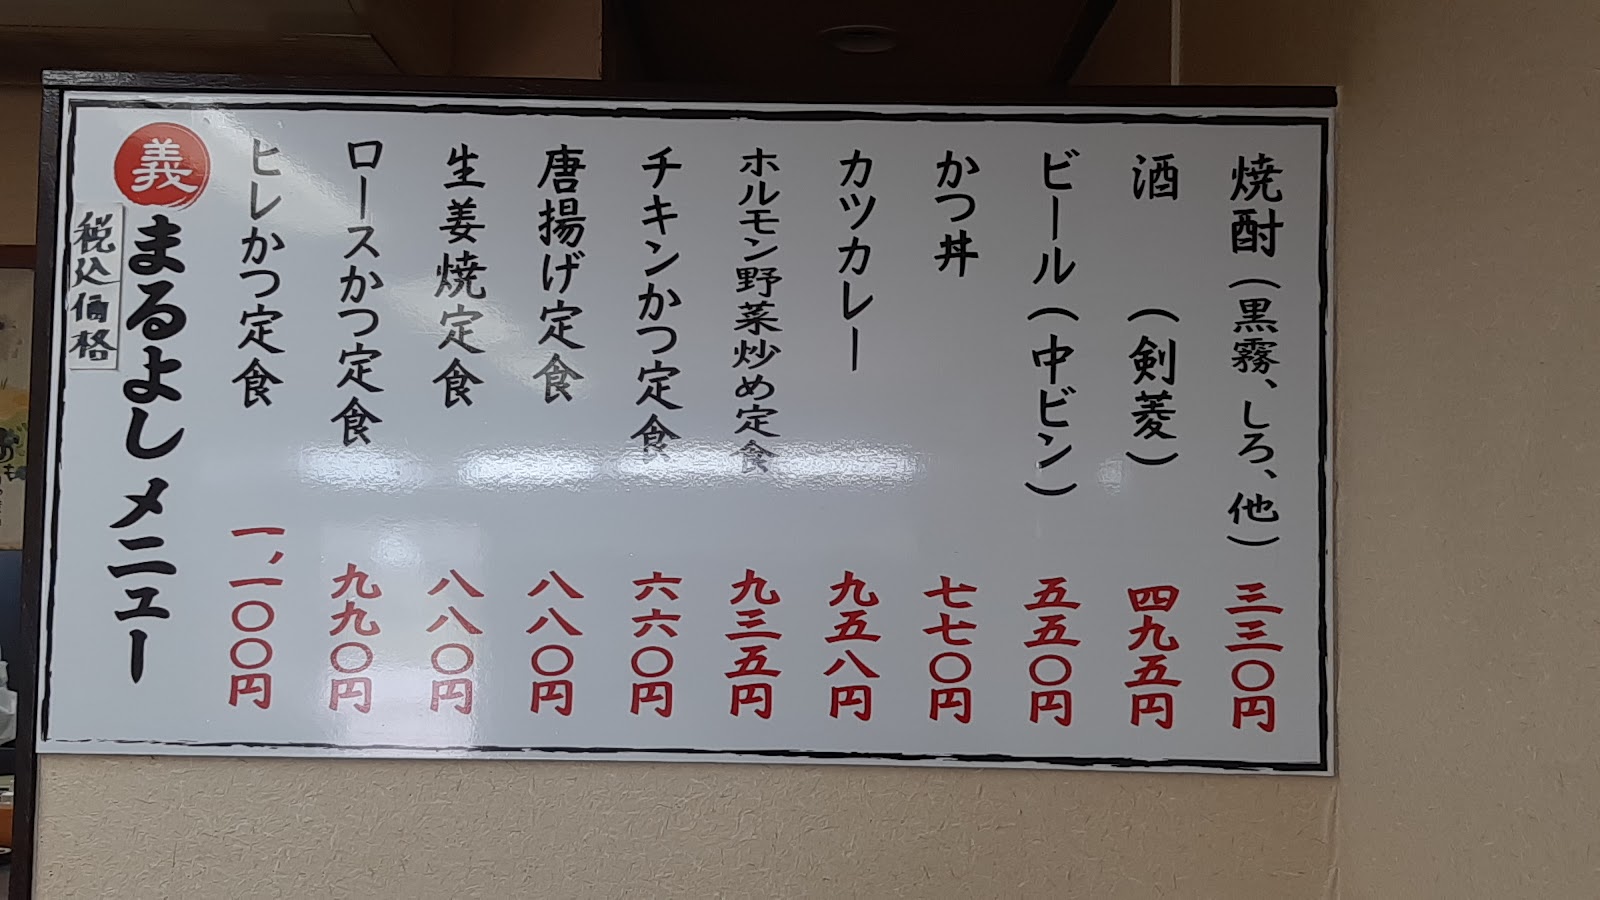 義 まるよし メニュー
税込価格
ヒレかつ定食 一,一〇〇円
ロースかつ定食 九九〇円
生姜焼定食 八八〇円
唐揚げ定食 八八〇円
チキンかつ定食 六六〇円
ホルモン野菜炒め定食 九三五円
カツカレー 九五八円
かつ丼 七七〇円
ビール(中ビン) 五五〇円
酒 (剣菱) 四九五円
焼酎(黒霧、しろ、他) 三三〇円